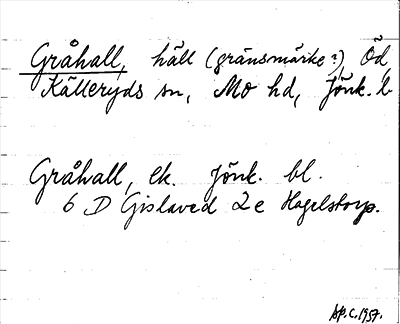 Gråhall, häll (gränsmärke?), Öd,
Källeryds sn, Mo hd, Jönk. l
Gråhall, ek. Jönk. bl.
6 D Gislaved 2 e Hagelstorp.
1957.